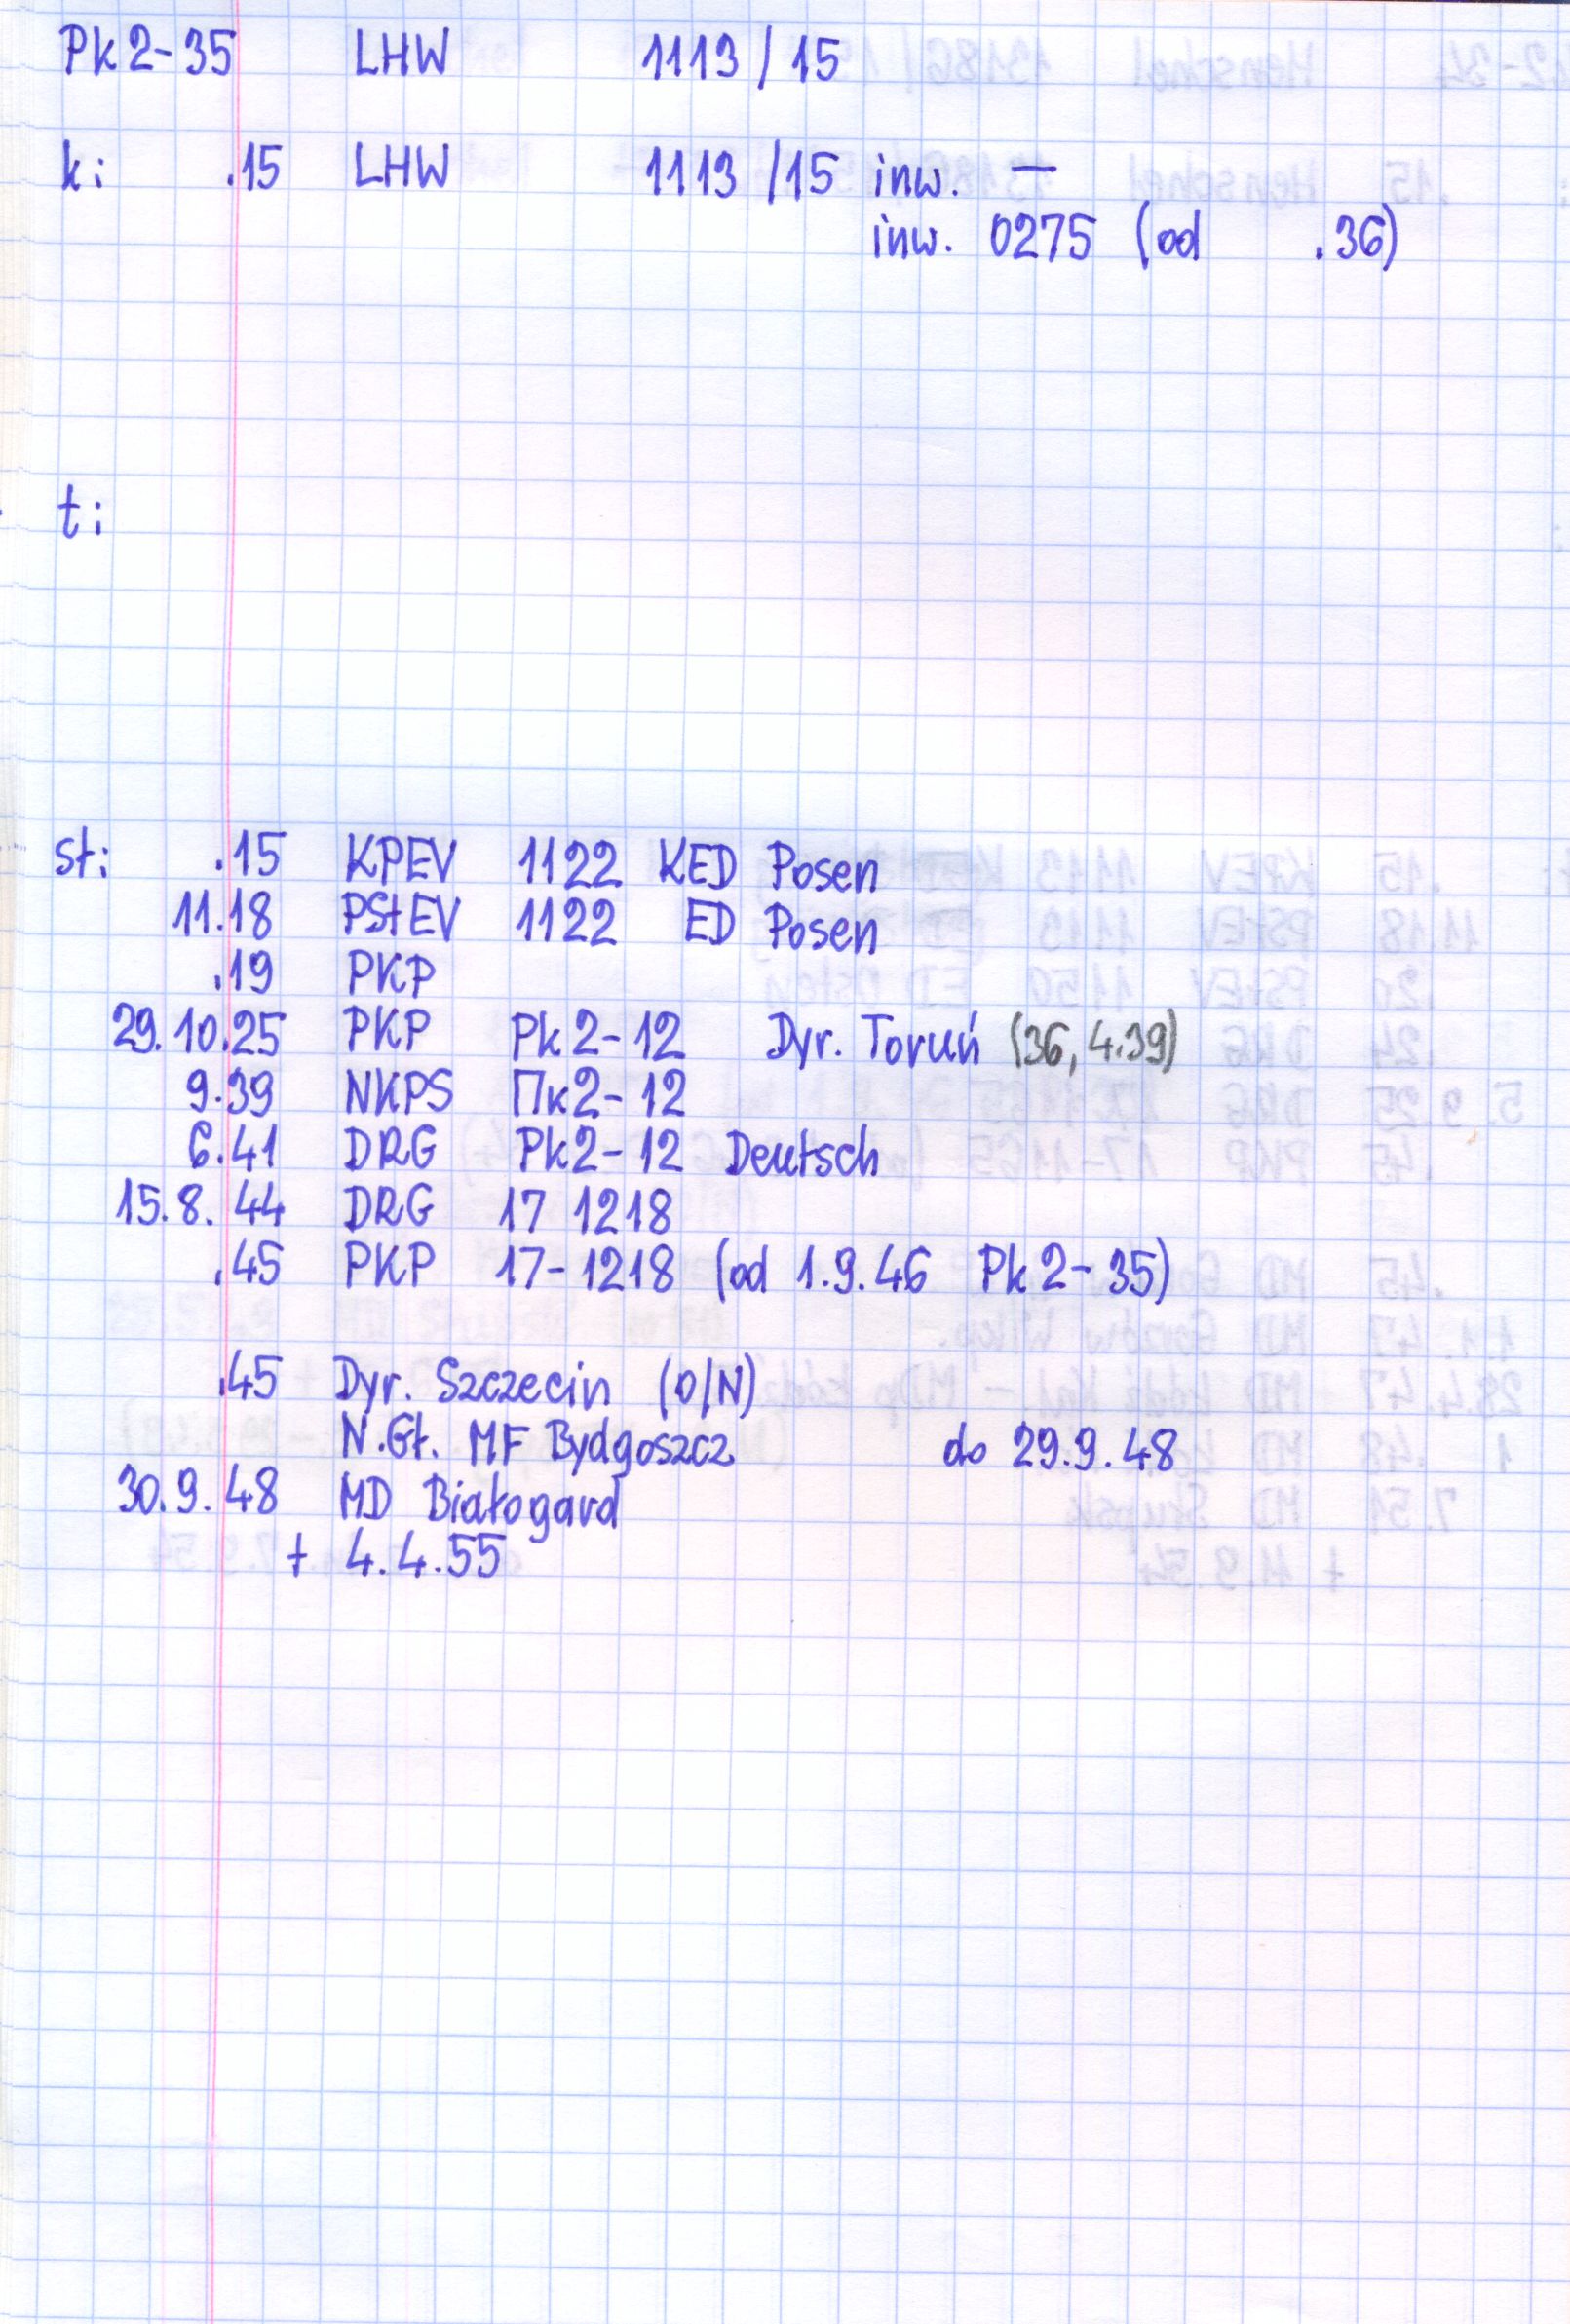 Pk2-35 LHW 1113/15
k: .15 LHW 1113/15 inw. —
inw. 0275 (od .36)
t:
st: .15 KPEV 1122 KED Posen
11.18 PStEV 1122 ED Posen
.19 PKP
29.10.25 PKP Pk2-12 Dyr. Toruń (36, 4.39)
9.39 NKPS Пк2-12
6.41 DRG Pk2-12 Deutsch
15.8.44 DRG 17 1218
.45 PKP 17-1218 (od 1.9.46 Pk2-35)
.45 Dyr. Szczecin (O/N)
N.Gł. MF Bydgoszcz do 29.9.48
30.9.48 MD Białogard
+ 4.4.55